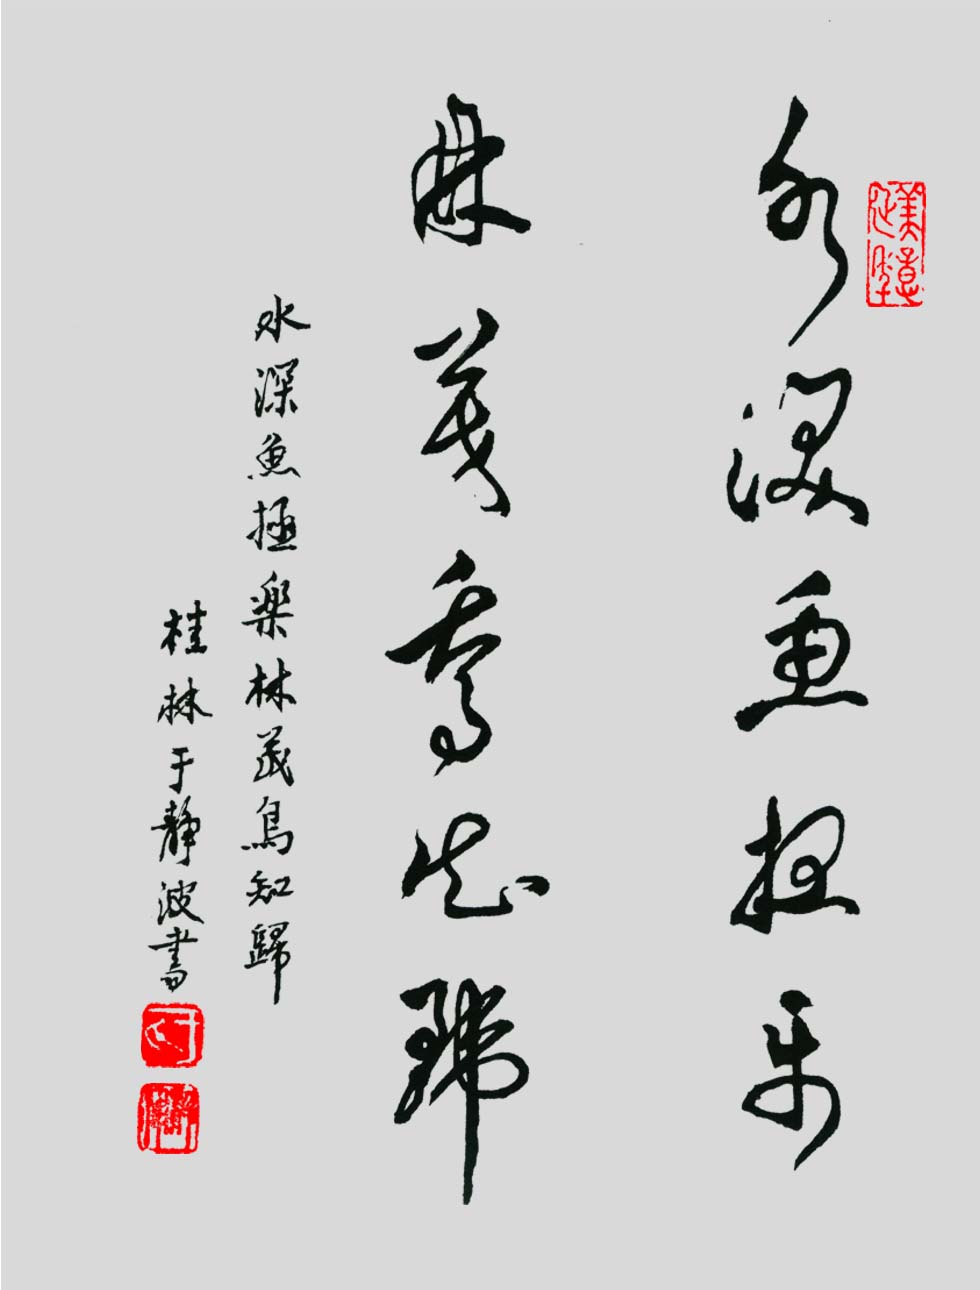 水深魚極樂
林茂鳥知歸
水深魚極楽林茂鳥知歸
桂林于静波書